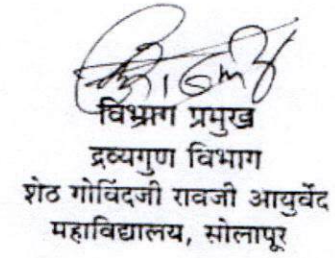 विभाग प्रमुख
द्रव्यगुण विभाग
शेठ गोविंदजी रावजी आयुर्वेद
महाविद्यालय, सोलापूर